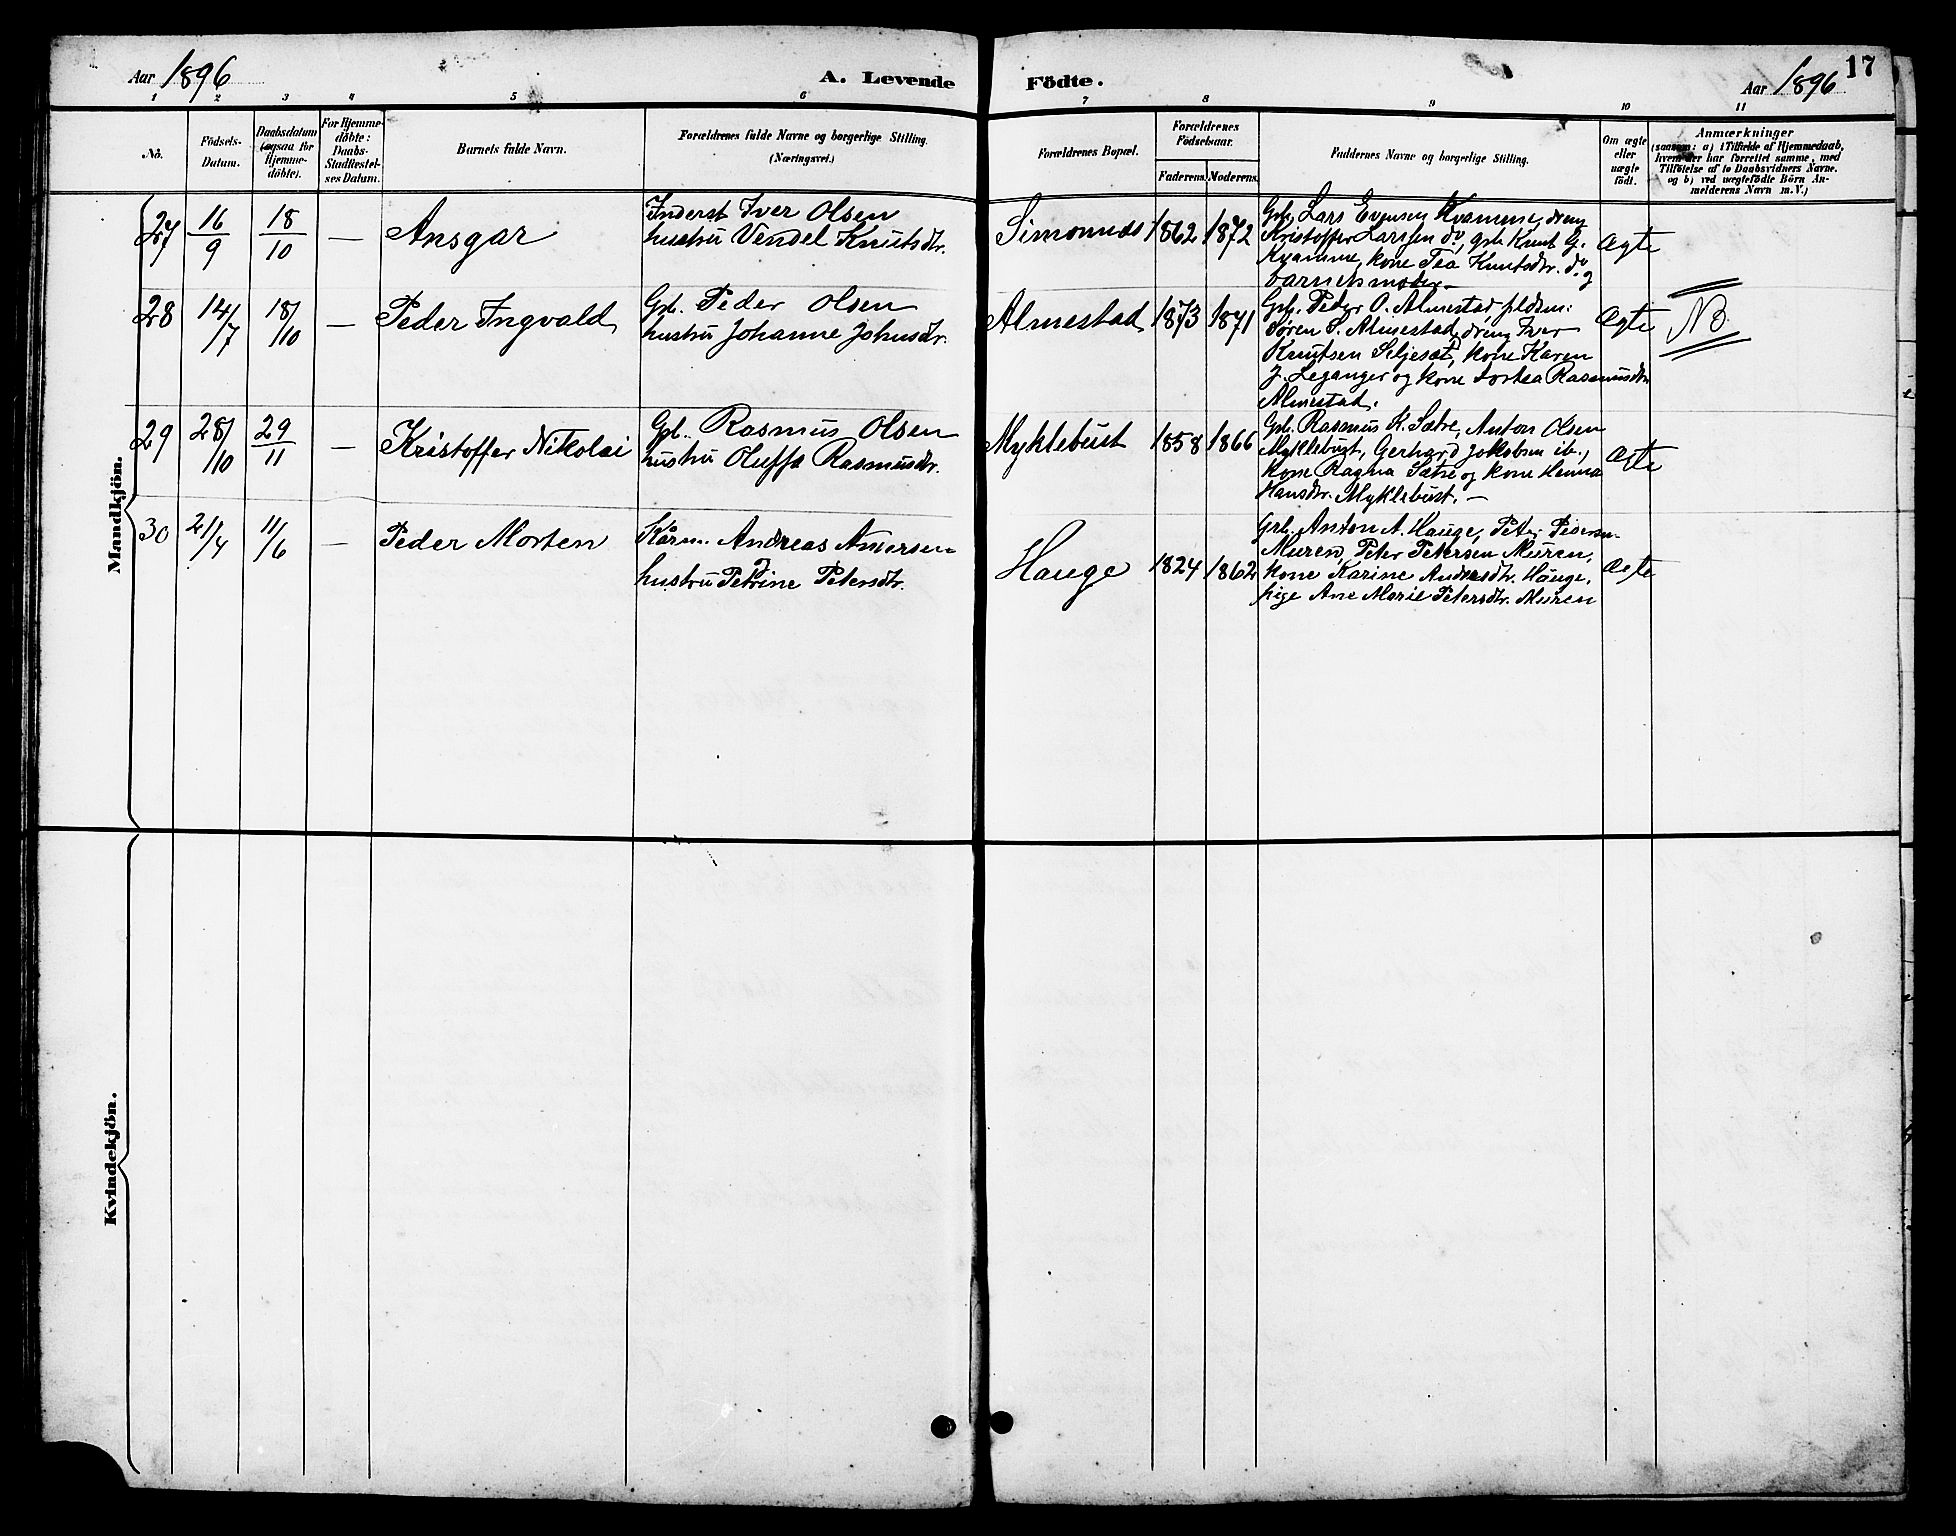 Aar 1896
A. Levende Födte.
Aar 1896
17
1 2 3 4 5 6 7 8 9 10 11
No.
Födsels-
Datum.
Daabsdatum
(ogsaa for
Hjemme-
döbte).
For Hjemme-
döbte:
Daabs-
Stadfæstel-
ses Datum.
Barnets fulde Navn.
Forældrenes fulde Navne og borgerlige Stilling.
(Næringsvei.)
Forældrenes Bopæl.
Forældrenes
Födselsaar.
Faderens. Moderens.
Faddernes Navne og borgerlige Stilling.
Om ægte
eller
uægte
födt.
Anmærkninger
(saasom: a) i Tilfælde af Hjemmedaab,
hvem der har forrettet samme, med
Tilföielse af to Daabsvidners Navne.
og b) ved uægtefödte Börn An-
melderens Navn m. V.)
Mandkjön.
27 16/9 18/10 — Ansgar
Inderst Iver Olsen
hustru Vendel Knutsdtr.
Simonnes 1862 1872
Grb. Lars Evensen Kvamme, dreng
Kristoffer Larssen do, grb. Knut G.
Kvamme, kone Tea Knutsdtr. do og
barnets moder.—
Ægte
28 14/7 18/10 — Peder Ingvald
Grb. Peder Olsen
hustru Johanne Johnsdtr.
Almestad 1873 1871
Grb. Peder O. Almestad, pldsm:
Søren S. Almestad, dreng Iver
Knutsen Seljeset, kone Karen
J. Leganger og kone Dortea Rasmusdtr.
Almestad.
Ægte
NB.
29 28/10 29/11 — Kristoffer Nikolai
Grb. Rasmus Olsen
hustru Oluffa Rasmusdtr.
Myklebust 1858 1866
Grb. Rasmus K. Sætre, Anton Olsen
Myklebust, Gerhard Jakobsen ib.,
kone Ragna Sætre og kone Hanna
Hansdtr. Myklebust.—
Ægte
30 21/4 11/6 — Peder Morten
Kårm. Andreas Andersen
hustru Petrine Petersdtr.
Hauge 1824 1862
Grb. Anton A. Hauge, Peter Pedersen
Muren, Peter Petersen Muren,
kone Karine Andersdtr. Hauge,
pige Ane Marie Petersdtr. Muren
Ægte
Kvindekjön.